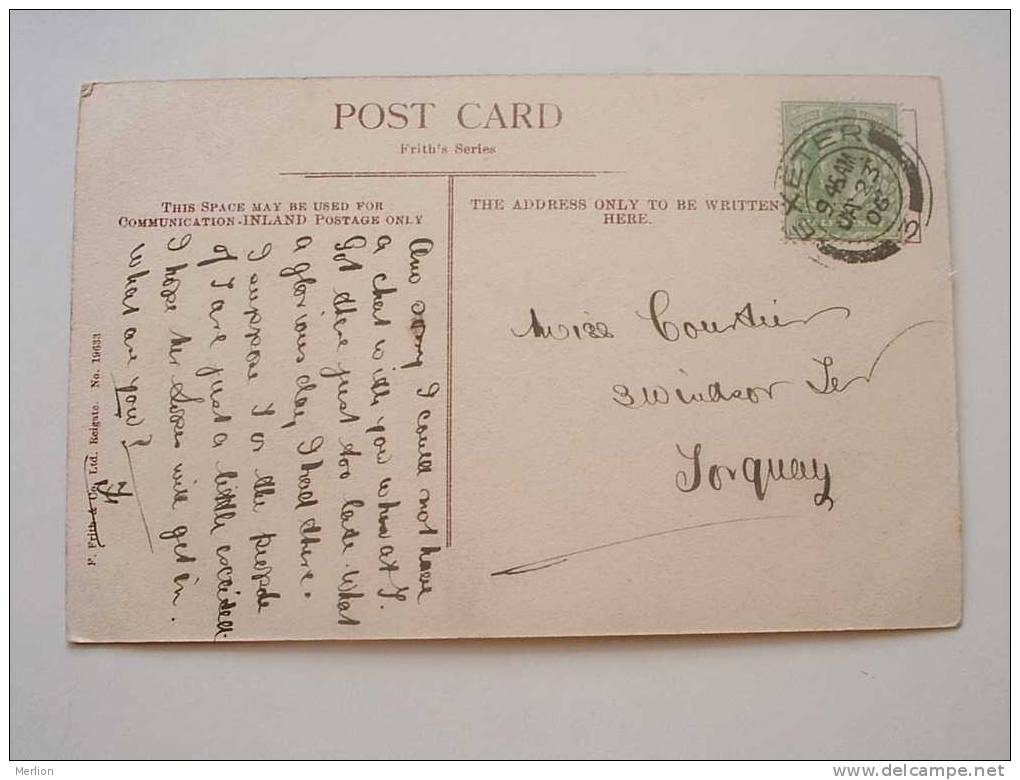 POST CARD
Frith's Series
THIS SPACE MAY BE USED FOR
COMMUNICATION-INLAND POSTAGE ONLY
THE ADDRESS ONLY TO BE WRITTEN
HERE.
EXETER
9 45 AM
JA 23
06
2
sorry I could not have
a chat with you when at T.
Got there just too late. What
a glorious day I had there.
I suppose T or the people
of T are just a little excited.
I hope Mr will get in.
What are you?
Miss Courtier
3 Windsor Ter
Torquay
F. Frith & Co. Ltd. Reigate. No. 19633
Merlion
delcampe.net